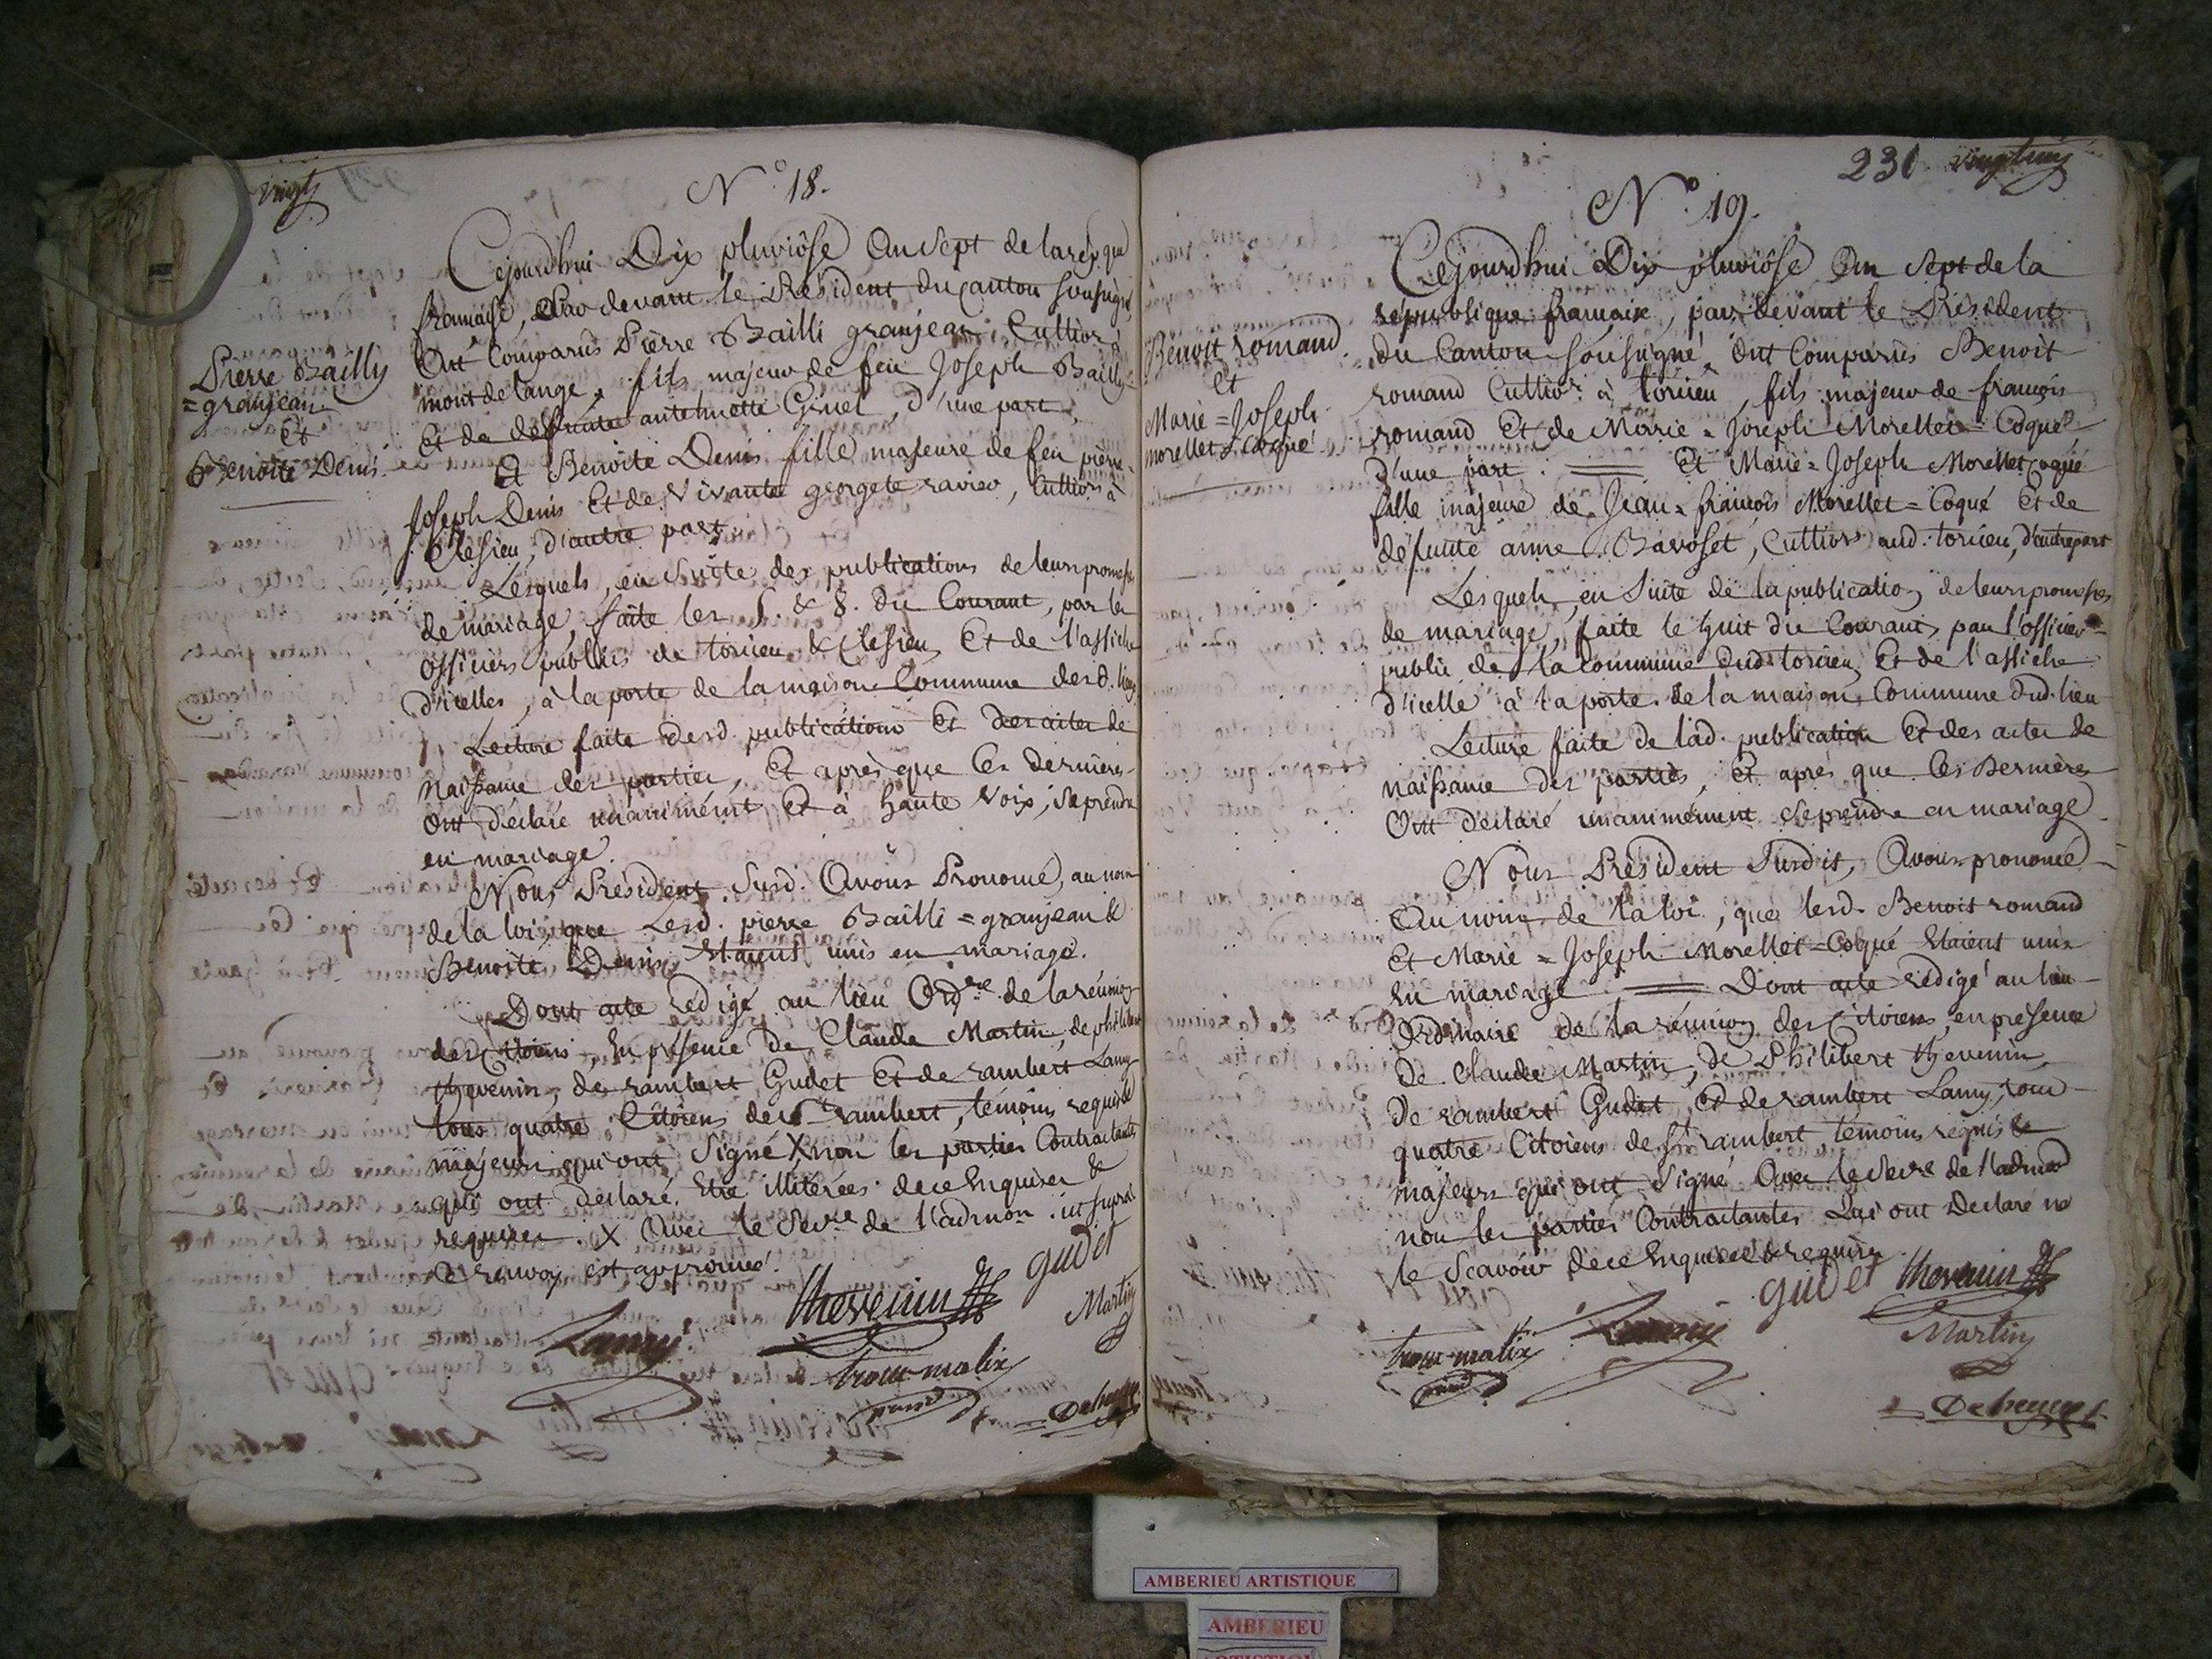 vingt
N° 18.
Pierre Bailly
= granjean
Et
Benoite Denis
Cejourdhui Dix pluviôse An sept de la rép.que
francaise, Par devant le Président du Canton soussigné,
Ont Comparûs Pierre Bailli granjean, Cultivr à
mont de lange, fils majeur de feu Joseph Bailly
Et de defunte antelmette Grinel, d'une part,
Et Benoite Denis fille majeure de feu pierre
Joseph Denis Et de Vivante georgete ravier, Cultivrs à
Clesieu, d'autre part
Lesquels, en suite des publications de leurs promesses
de mariage, faite les & 8. du Courant, par les
officiers publics de torcieu & Clesieu, Et de l'affiche
d'icelles, à la porte de la maison Commune desd. lieux
Lecture faite desd. publications Et des actes de
naissance des parties, Et après que les dernières
Ont déclaré unanimément Et à haute voix, se prendre
en mariage.
Nous Président susd. Avons Prononcé, au nom
de la loi, que Lesd. pierre Bailli = granjean &
Benoite Denis, Etaient unis en mariage.
Dont acte redigé au lieu Ordre de la réunion
des Citoiens, En présence de Claude Martin, de philibert
thevenin, de rambert Gudet Et de rambert Lamy
tous quatre Citoiens de St rambert, témoins requis &
majeurs qui ont Signé X non les parties Contractantes
qui ont déclaré Etre illiterées de ce Enquises &
requises. X Avec le Secre de l'admon. ut supra
Ce renvoy est approuvé.
gudet
thevenin
Martin
Lamy
trocu-malix
presid
Dehenge
231 vingt un
N° 19.
Benoit romand
et
Marie = Joseph
morellet = Coqué
Cejourdhui Dix pluviôse An Sept de la
république francaise, par devant le Président
du Canton soussigné, Ont Comparûs Benoit
romand Cultivr à torcieu, fils majeur de francois
romand Et de Marie = Joseph Morellet = Coqué
d'une part. Et Marie = Joseph Morellet Coqué
fille majeure de Jean = francois Morellet = Coqué Et de
défunte anne Bavoset, Cultivrs aud. torcieu, d'autre part
Lesquels, en suite de la publication de leurs promesses
de mariage, faite le huit du Courant, par l'officier
public de la commune dud. torcieu, Et de l'affiche
d'icelle à la porte de la maison Commune dud. lieu
Lecture faite de lad. publication Et des actes de
naissance des parties, Et après que les Dernières
Ont déclaré unanimément se prendre en mariage
Nous Président susdit, Avons prononcé
Au nom de la loi, que lesd. Benoit romand
Et Marie = Joseph Morellet = Coqué Etaient unis
En mariage. Dont acte redigé au lieu
Ordinaire de la réunion des Citoiens, en présence
De Claude Martin, de Philibert thevenin,
De rambert Gudet Et de rambert Lamy, tous
quatre Citoiens de St rambert, témoins requis &
majeurs qui ont Signé Avec le Secre de l'admon
non les parties Contractantes qui ont Déclaré ne
le Scavoir de ce Enquises & requises
gudet thevenin
trocu-malix Lamy Martin
presid
Dehenge
AMBERIEU ARTISTIQUE
AMBERIEU
ARTISTIQUE